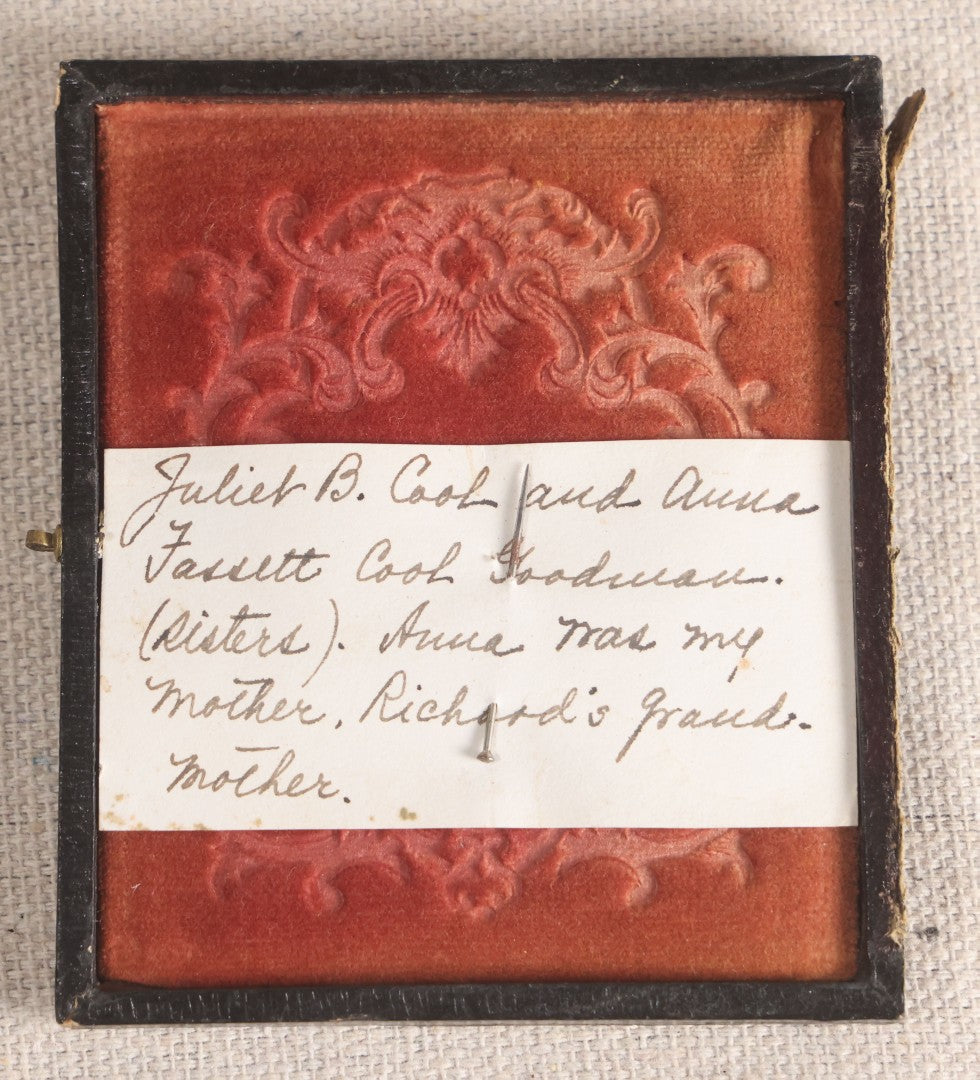 Juliet B. Cook and Anna
Fassett Cook Goodman.
(Sisters). Anna was my
Mother, Richard's grand-
Mother.